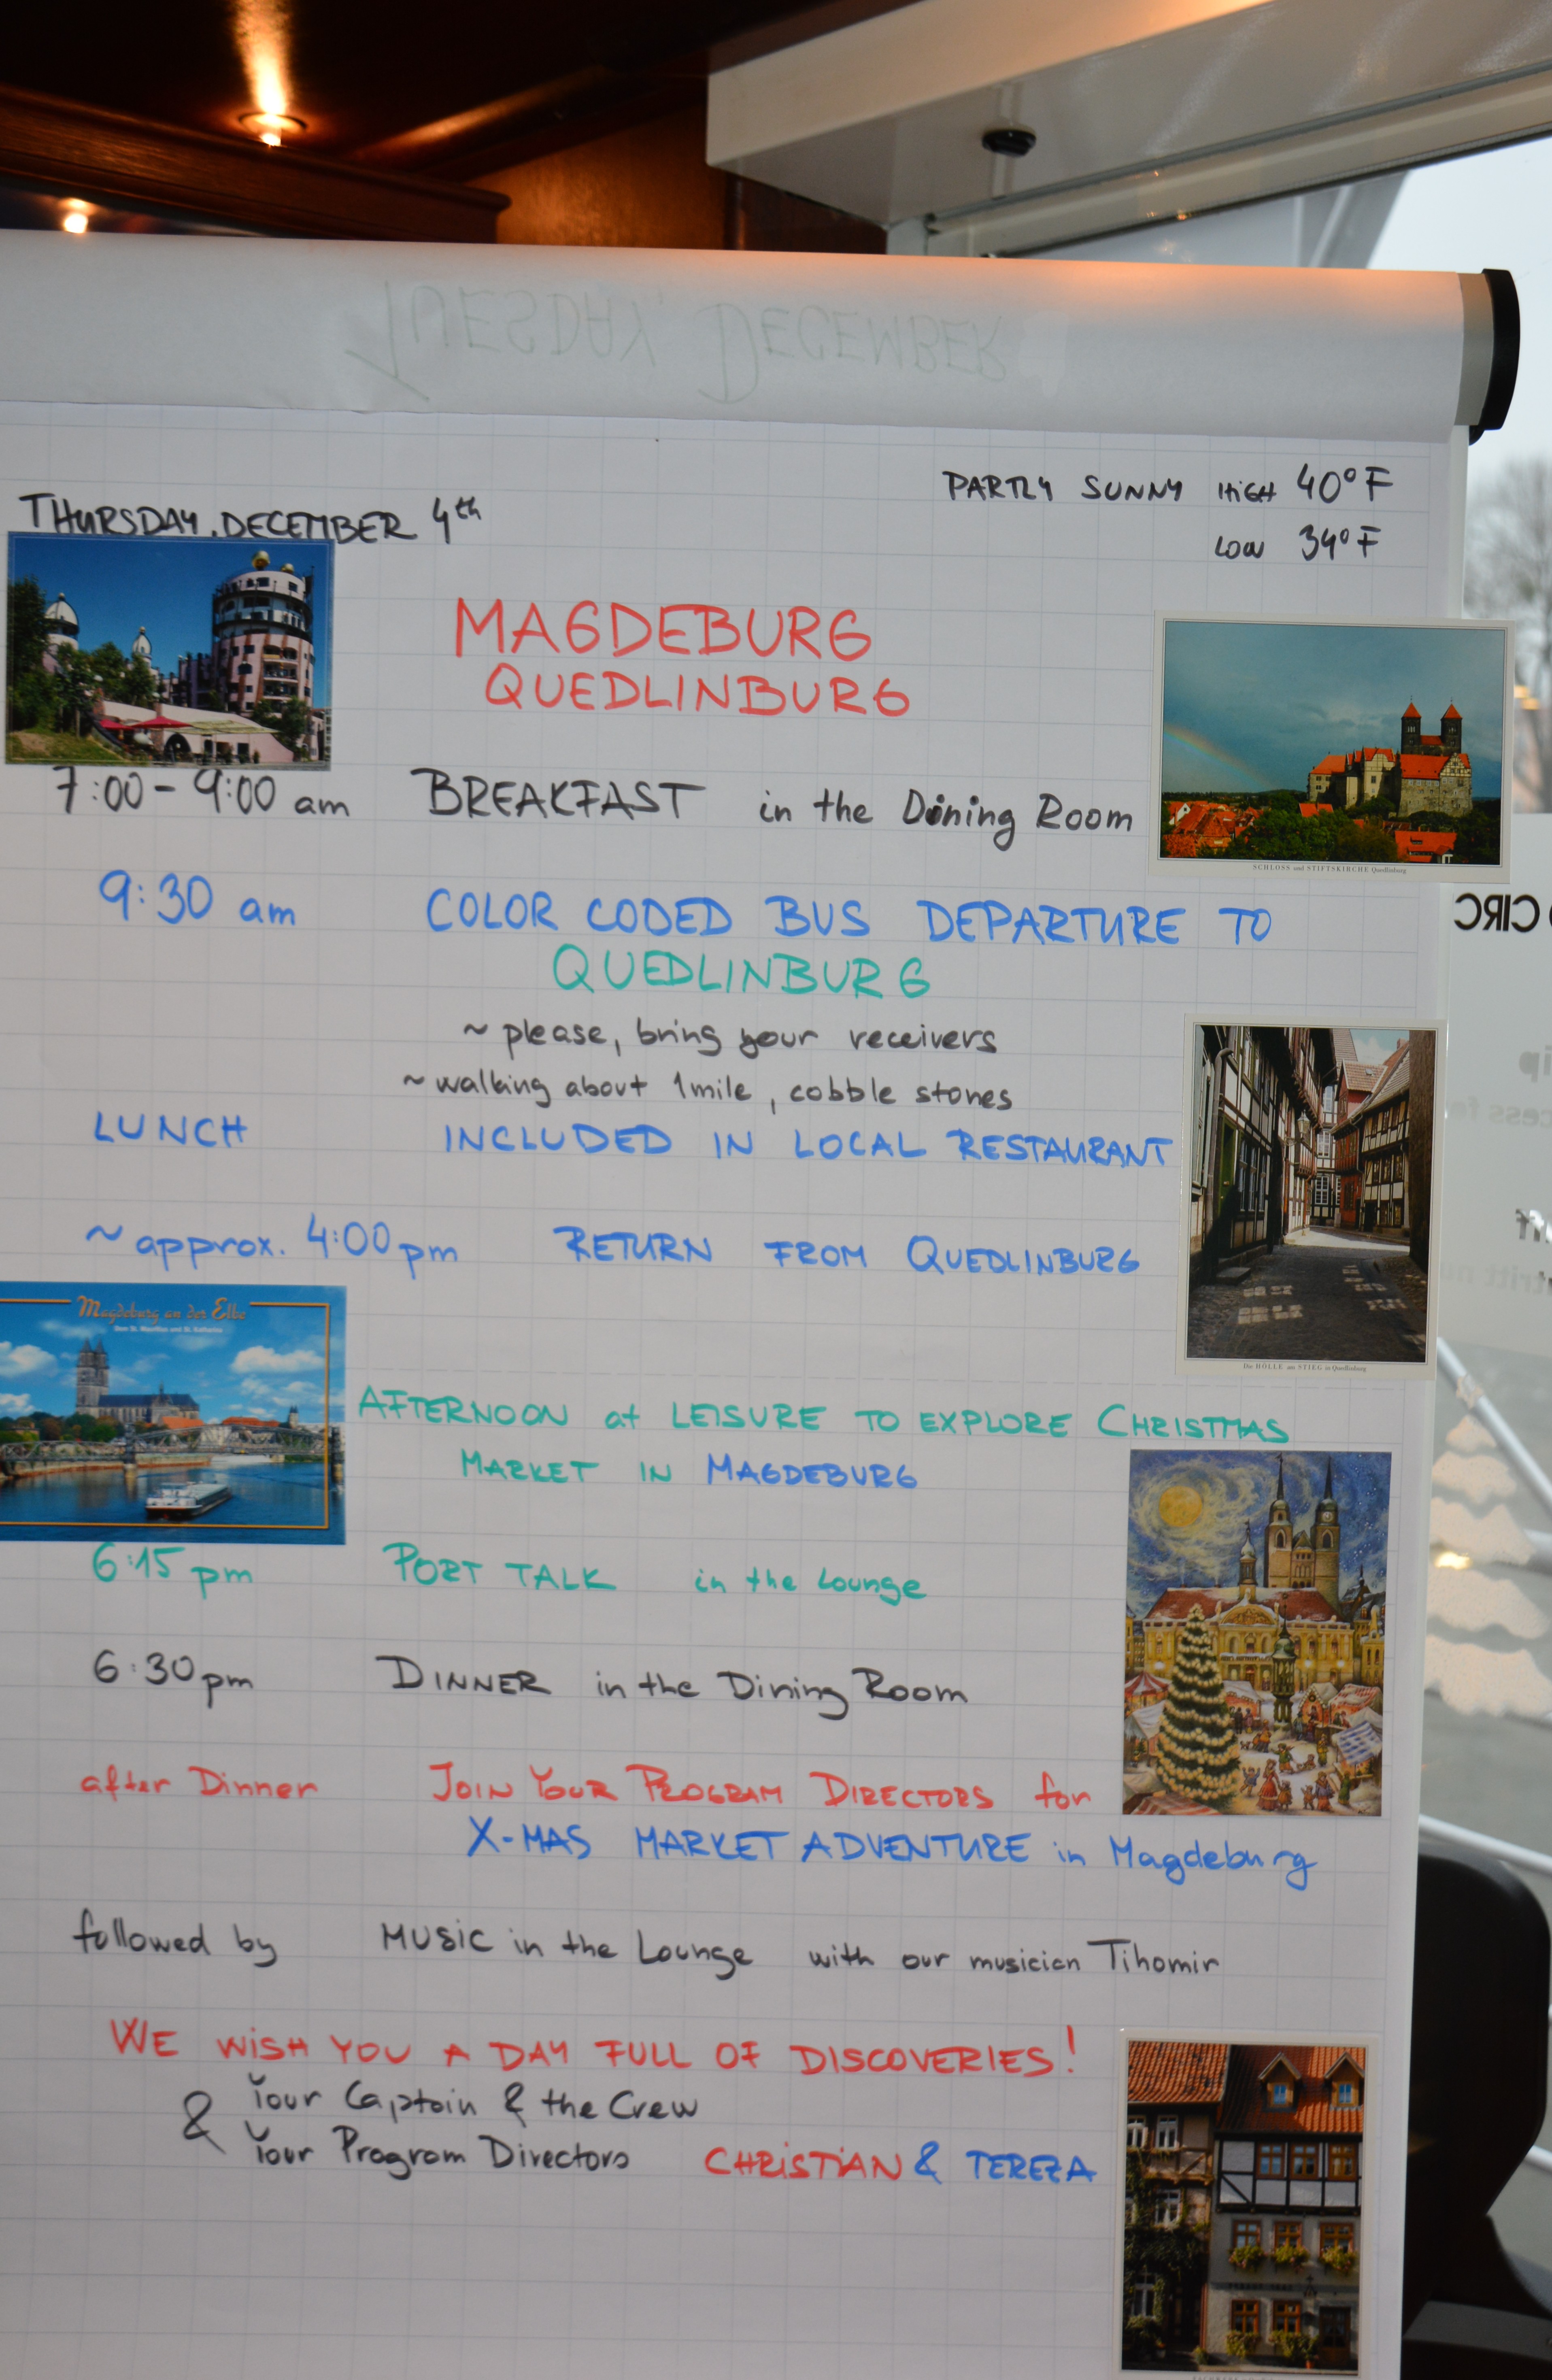 TUESDAY, DECEMBER
THURSDAY, DECEMBER 4th
PARTLY SUNNY HIGH 40°F
LOW 34°F
MAGDEBURG
QUEDLINBURG
7:00 - 9:00 am BREAKFAST in the Dining Room
SCHLOSS und STIFTSKIRCHE Quedlinburg
9:30 am COLOR CODED BUS DEPARTURE TO
QUEDLINBURG
CIRC
~ please, bring your receivers
~ walking about 1mile, cobble stones
LUNCH INCLUDED IN LOCAL RESTAURANT
~ approx. 4:00 pm RETURN FROM QUEDLINBURG
Die HÖLLE am STIEG in Quedlinburg
Magdeburg an der Elbe
Dom St. Mauritius und St. Katharina
AFTERNOON at LEISURE TO EXPLORE CHRISTMAS
MARKET IN MAGDEBURG
6:15 pm PORT TALK in the Lounge
6:30 pm DINNER in the Dining Room
after Dinner JOIN YOUR PROGRAM DIRECTORS for
X-MAS MARKET ADVENTURE in Magdeburg
followed by MUSIC in the Lounge with our musician Tihomir
WE WISH YOU A DAY FULL OF DISCOVERIES!
Your Captain & the Crew
& Your Program Directors CHRISTIAN & TEREZA